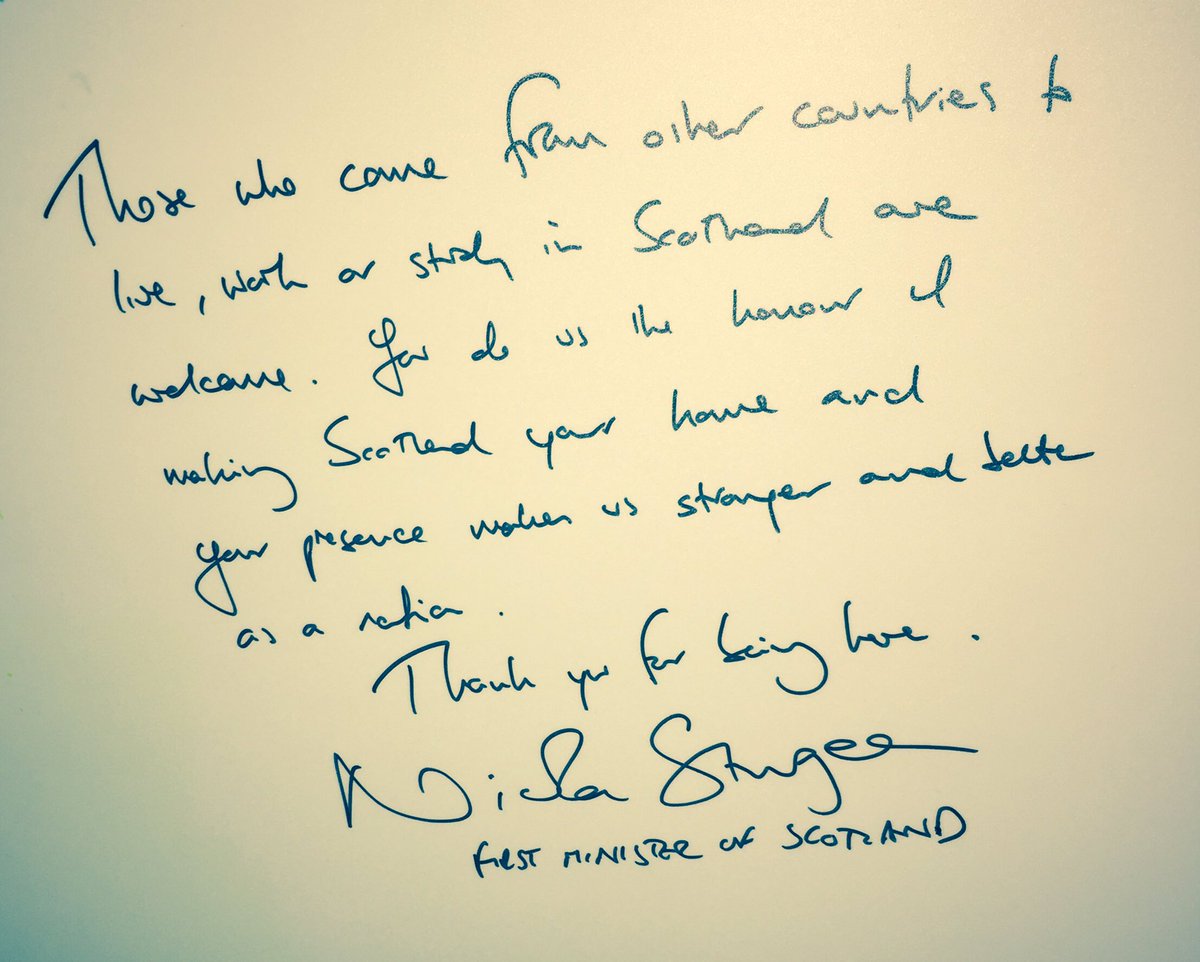 Those who come from other countries to
live, work or study in Scotland are
welcome. You do us the honour of
making Scotland your home and
your presence makes us stronger and better
as a nation.
Thank you for being here.
Nicola Sturgeon
FIRST MINISTER OF SCOTLAND